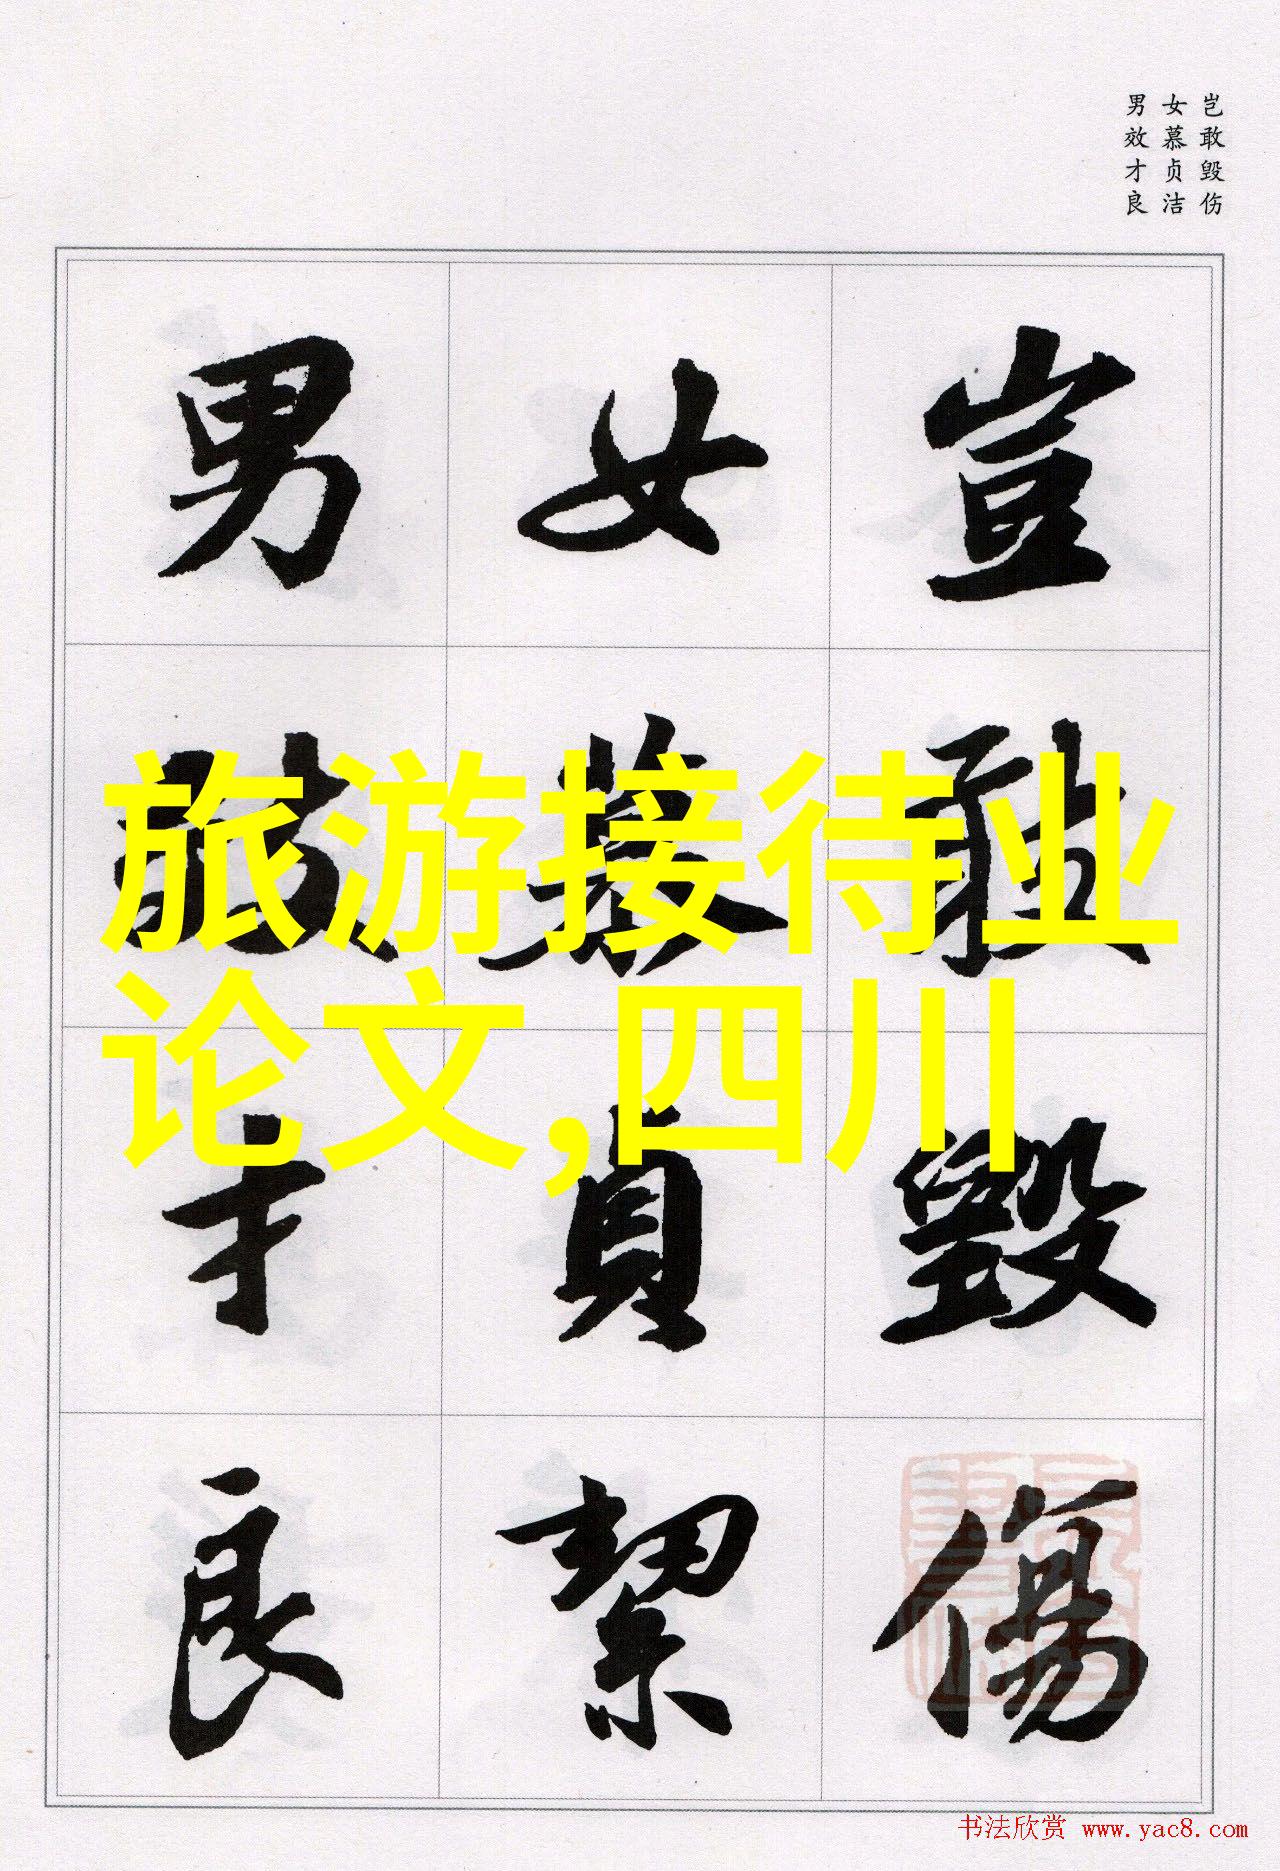 岂敢毁伤
女慕贞洁
男效才良
豈敢毀傷
女慕貞絜
男效才良
旅游接待业
论文,四川
书法欣赏 www.yac8.com